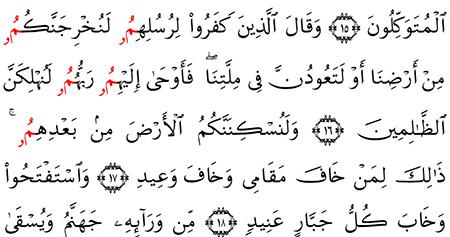 اَ۬لْمُتَوَكِّلُونَ ۝١٥ وَقَالَ اَ۬لذِينَ كَفَرُواْ لِرُسُلِهِمُۥ لَنُخْرِجَنَّكُمُۥ
مِنَ اَرْضِنَا أَوْ لَتَعُودُنَّ فِى مِلَّتِنَا فَأَوْحَىٰ إِلَيْهِمُۥ رَبُّهُمُۥ لَنُهْلِكَنَّ
اَ۬لظَّٰلِمِينَ ۝١٦ وَلَنُسْكِنَنَّكُمُ اُ۬لْأَرْضَ مِنۢ بَعْدِهِمُۥ
ذَٰلِكَ لِمَنْ خَافَ مَقَامِى وَخَافَ وَعِيدِ ۝١٧ وَاسْتَفْتَحُواْ
وَخَابَ كُلُّ جَبَّارٍ عَنِيدٍ ۝١٨ مِّن وَرَآئِهِۦ جَهَنَّمُ وَيُسْقَىٰ